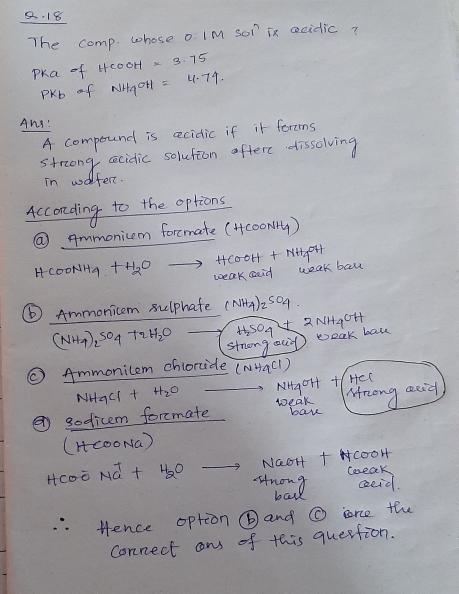 Q.18
The comp. whose 0.1M solⁿ is acidic ?
PKa of HCOOH = 3.75
PKb of NH4OH = 4.74.
Ans:
A compound is acidic if it forms
strong acidic solution after dissolving
in water.
According to the options
(a) Ammonium formate (HCOONH4)
HCOONH4 + H2O ⟶ HCOOH + NH4OH
weak acid weak base
(b) Ammonium sulphate (NH4)2SO4.
(NH4)2SO4 + 2H2O ⟶ H2SO4 + 2NH4OH
strong acid weak base
(c) Ammonium chloride (NH4Cl)
NH4Cl + H2O ⟶ NH4OH + HCl
weak base strong acid
(d) Sodium formate
(HCOONa)
HCOO⁻ Na⁺ + H2O ⟶ NaOH + HCOOH
strong base weak acid.
∴ Hence option (b) and (c) are the
correct ans of this question.